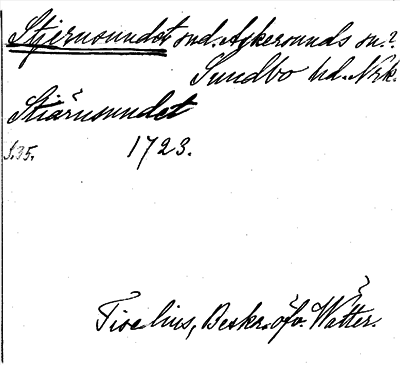 Stjernsundet snd. Askersunds sn.?
Sundbo hd. Nrk.
Stiärnsundet
s.35. 1723.
Tiselius, Beskr. öfv. Wätter.